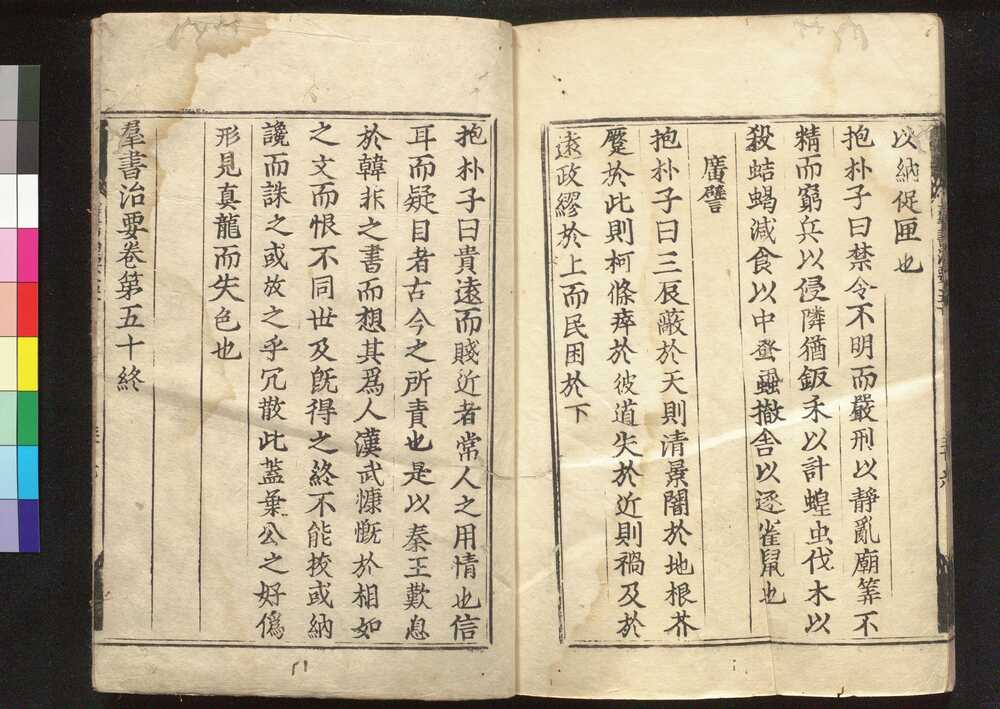 以納促匣也
抱朴子曰禁令不明而嚴刑以静亂廟筭不
精而窮兵以侵隣猶釤禾以計蝗虫伐木以
殺蛣蝎減食以中蚤蝨撤舎以逐雀鼠也
廣譬
抱朴子曰三辰蔽於天則清景闇於地根芥
蹷於此則柯條瘁於彼道失於近則禍及於
遠政繆於上而民困於下
抱朴子曰貴遠而賤近者常人之用情也信
耳而疑目者古今之所責也是以秦王歎息
於韓非之書而想其爲人漢武慷慨於相如
之文而恨不同世及旣得之終不能拔或納
讒而誅之或放之乎冗散此蓋葉公之好僞
形見真龍而失色也
羣書治要卷第五十終